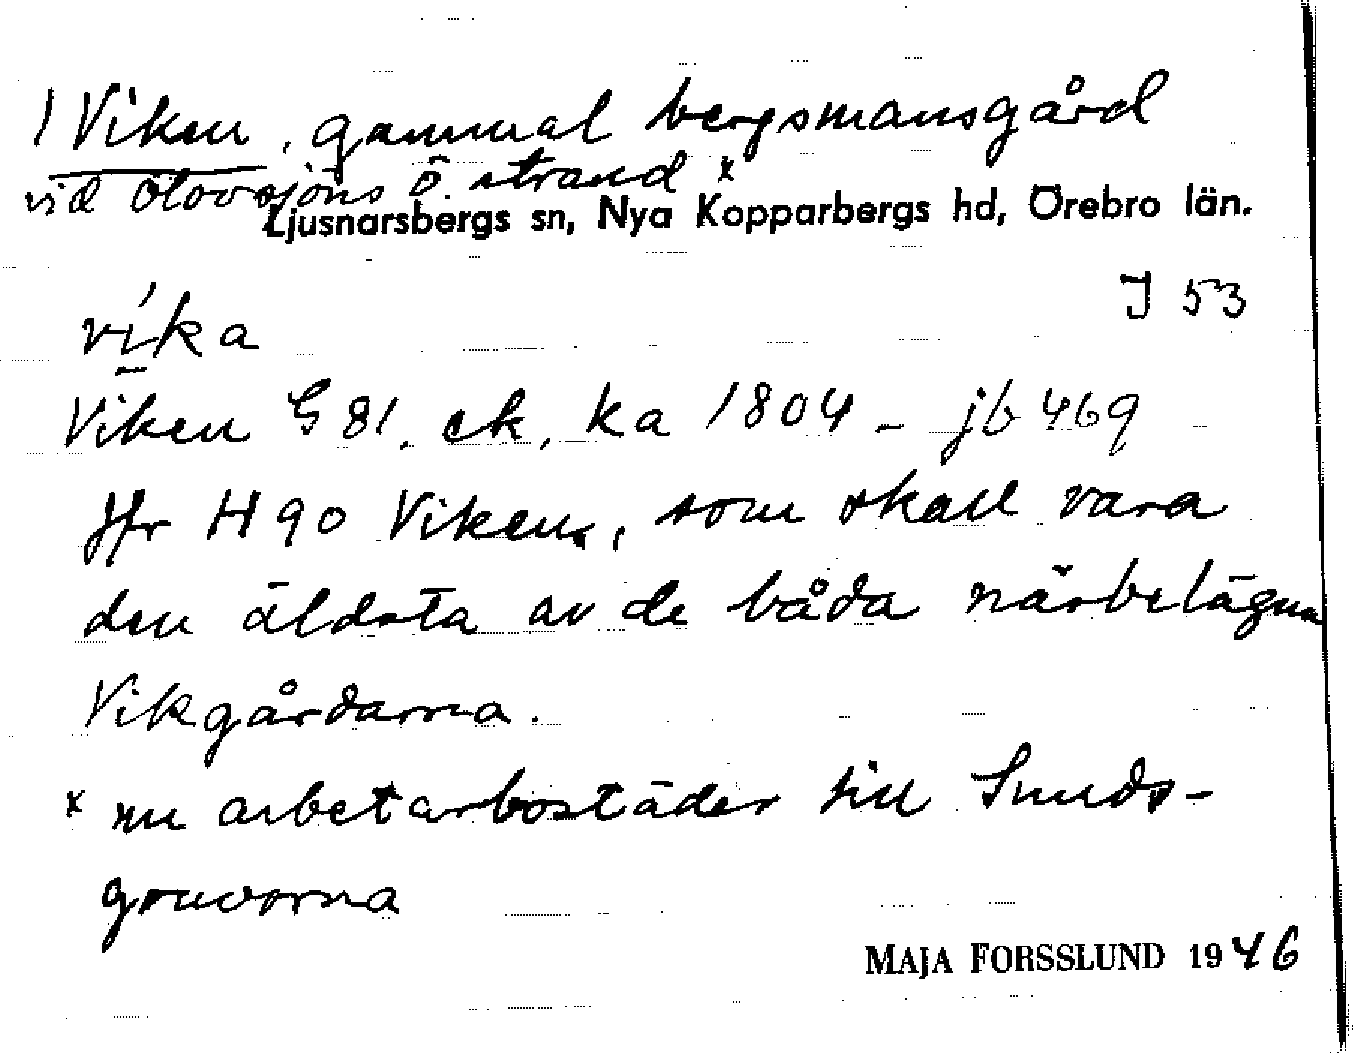 1 Viken, gammal bergsmansgård
vid Olovsjöns ö. strand x
Ljusnarsbergs sn, Nya Kopparbergs hd, Örebro län.
J 53
víka
Viken G 81. ek. ka 1804 - jb 469
Jfr H 90 Viken, som skall vara
den äldsta av de båda närbelägna
Vikgårdarna.
x nu arbetarbostäder till Sunds-
gruvorna
MAJA FORSSLUND 1946